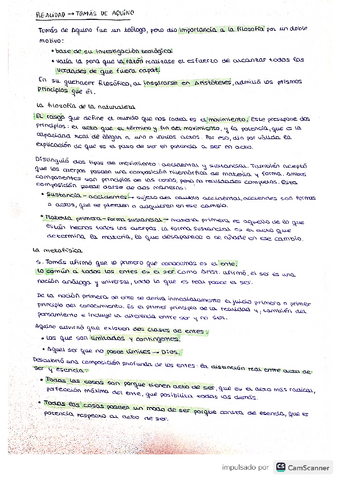 REALIDAD → TOMÁS DE AQUINO
Tomás de Aquino fue un teólogo, pero dio importancia a la filosofía por un doble
motivo:
• base de su investigación teológica
• valía la pena que la razón realitase el esfuerzo de alcanzar todas las
verdades de que fuera capaz.
En su quehacer filosófico, al inspirarse en Aristóteles, admitió los mismos
principios que él.
La filosofía de la naturaleza
El rasgo que define el mundo que nos rodea es el movimiento. Este presupone dos
principios: el acto que es término y fin del movimiento, y la potencia, que es la
capacidad real de llegar a uno o varios actos. Por eso, dio por válida la
explicación de que es el paso de ser en potencia a ser en acto.
Distinguió dos tipos de movimiento: accidental y sustancial. También aceptó
que los cuerpos poseen una composición hilemórfica de materia y forma. Ambos
componentes son principios de las cosas, pero no realidades completas. Esta
composición puede darse de dos maneras:
• Sustancia - accidentes → sujeto del cambio accidental, accidentes son formas
o actos, que se pierden o adquieren en ese cambio.
• Materia primera - forma sustancial → materia primera es aquello de lo que
están hechos todos los cuerpos. La forma sustancial es el acto que
determina la materia, lo que desaparece o se añade en ese cambio.
La metafísica
S. Tomás afirmó que lo primero que conocemos es el ente.
Lo común a todos los entes es el ser. Como Arist. afirmó, el ser es una
noción análoga y universal, todo lo que es real posee el ser.
De la noción primera de ente se deriva inmediatamente el juicio primero o primer
principio del conocimiento. Es el primer principio de la realidad y, también del
pensamiento e incluye la diferencia entre ser y no ser.
Aquino admitió que existen dos clases de entes:
• Los que son limitados y contingentes.
• Aquel ser que no posee límites → Dios.
Descubrió una composición profunda de los entes: la distinción real entre acto de
ser y esencia:
• Todas las cosas son porque tienen acto de ser, que es el acto más radical,
perfección máxima del ente, que posibilita todas las demás.
• Todas las cosas poseen un modo de ser porque consta de esencia, que es
potencia respecto al acto de ser.
impulsado por CS CamScanner